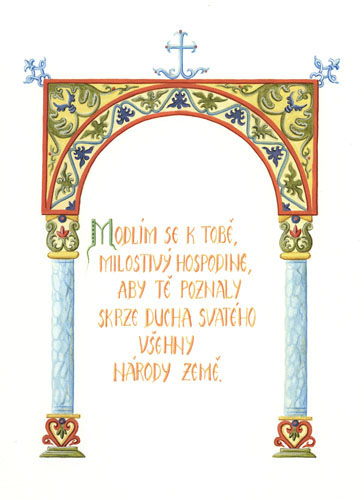 MODLÍM SE K TOBĚ,
MILOSTIVÝ HOSPODINE,
ABY TĚ POZNALY
SKRZE DUCHA SVATÉHO
VŠEHNY
NÁRODY ZEMĚ.